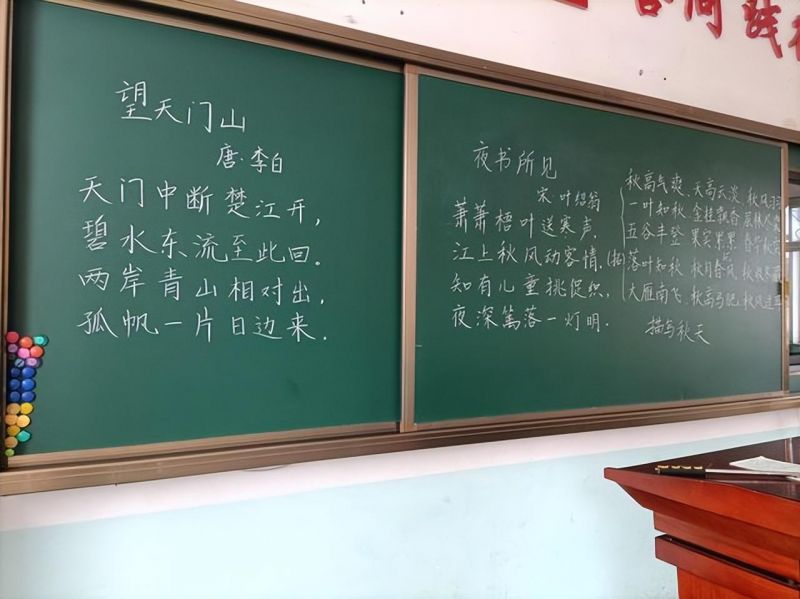 望天门山
唐·李白
天门中断楚江开，
碧水东流至此回。
两岸青山相对出，
孤帆一片日边来．
夜书所见
宋·叶绍翁
萧萧梧叶送寒声．
江上秋风动客情．
知有儿童挑促织，
夜深篱落一灯明．
秋高气爽 天高云淡 秋风习习
一叶知秋 金桂飘香 层林尽染
五谷丰登 果实累累 春华秋实
落叶知秋 秋月春风 秋收冬藏
大雁南飞 秋高马肥 秋风过耳
描写秋天